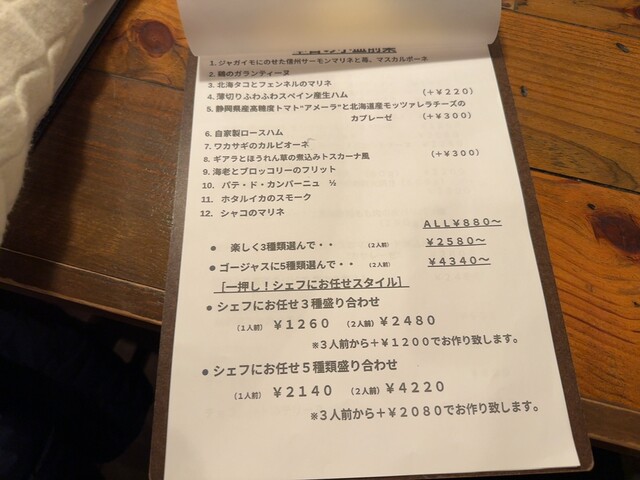 1. ジャガイモにのせた信州サーモンマリネと苺、マスカルポーネ
2. 鶏のガランティーヌ
3. 北海タコとフェンネルのマリネ
4. 薄切りふわふわスペイン産生ハム （＋￥２２０）
5. 静岡県産高糖度トマト"アメーラ"と北海道産モッツァレラチーズの
カプレーゼ （＋￥３００）
6. 自家製ロースハム
7. ワカサギのカルピオーネ
8. ギアラとほうれん草の煮込みトスカーナ風 （＋￥３００）
9. 海老とブロッコリーのフリット
10. パテ・ド・カンパーニュ ½
11. ホタルイカのスモーク
12. シャコのマリネ
ＡＬＬ￥８８０～
● 楽しく3種類選んで・・ （２人前） ￥２５８０～
● ゴージャスに5種類選んで・・ （２人前） ￥４３４０～
［一押し！シェフにお任せスタイル］
● シェフにお任せ３種盛り合わせ
（１人前） ￥１２６０ （２人前）￥２４８０
※３人前から＋￥１２００でお作り致します。
● シェフにお任せ５種類盛り合わせ
（１人前） ￥２１４０ （２人前）￥４２２０
※３人前から＋￥２０８０でお作り致します。